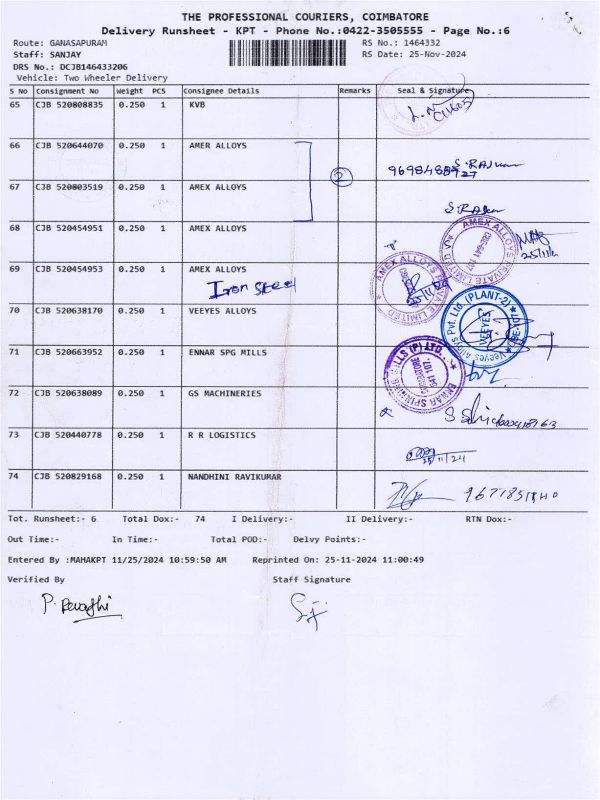 THE PROFESSIONAL COURIERS, COIMBATORE
Delivery Runsheet - KPT - Phone No.:0422-3505555 - Page No.:6
Route: GANASAPURAM RS No.: 1464332
Staff: SANJAY RS Date: 25-Nov-2024
DRS No.: DCJB146433206
Vehicle: Two Wheeler Delivery
S No Consignment No Weight PCS Consignee Details Remarks Seal & Signature
65 CJB 520808835 0.250 1 KVB
66 CJB 520644070 0.250 1 AMER ALLOYS
2
67 CJB 520803519 0.250 1 AMEX ALLOYS
68 CJB 520454951 0.250 1 AMEX ALLOYS
AMEX ALLOYS PRIVATE LIMITED
25/11/24
69 CJB 520454953 0.250 1 AMEX ALLOYS
Iron Steel
AMEX ALLOYS PRIVATE LIMITED
70 CJB 520638170 0.250 1 VEEYES ALLOYS
Veeyes Alloys Pvt. Ltd. (PLANT-2)
VEEYES
71 CJB 520663952 0.250 1 ENNAR SPG MILLS
ENNAR SPINNING MILLS (P) LTD.
COIMBATORE
641 107.
72 CJB 520638089 0.250 1 GS MACHINERIES
73 CJB 520440778 0.250 1 R R LOGISTICS
25/11/24
74 CJB 520829168 0.250 1 NANDHINI RAVIKUMAR
Tot. Runsheet:- 6 Total Dox:- 74 I Delivery:- II Delivery:- RTN Dox:-
Out Time:- In Time:- Total POD:- Delvy Points:-
Entered By :MAHAKPT 11/25/2024 10:59:50 AM Reprinted On: 25-11-2024 11:00:49
Verified By Staff Signature
P. Revathi